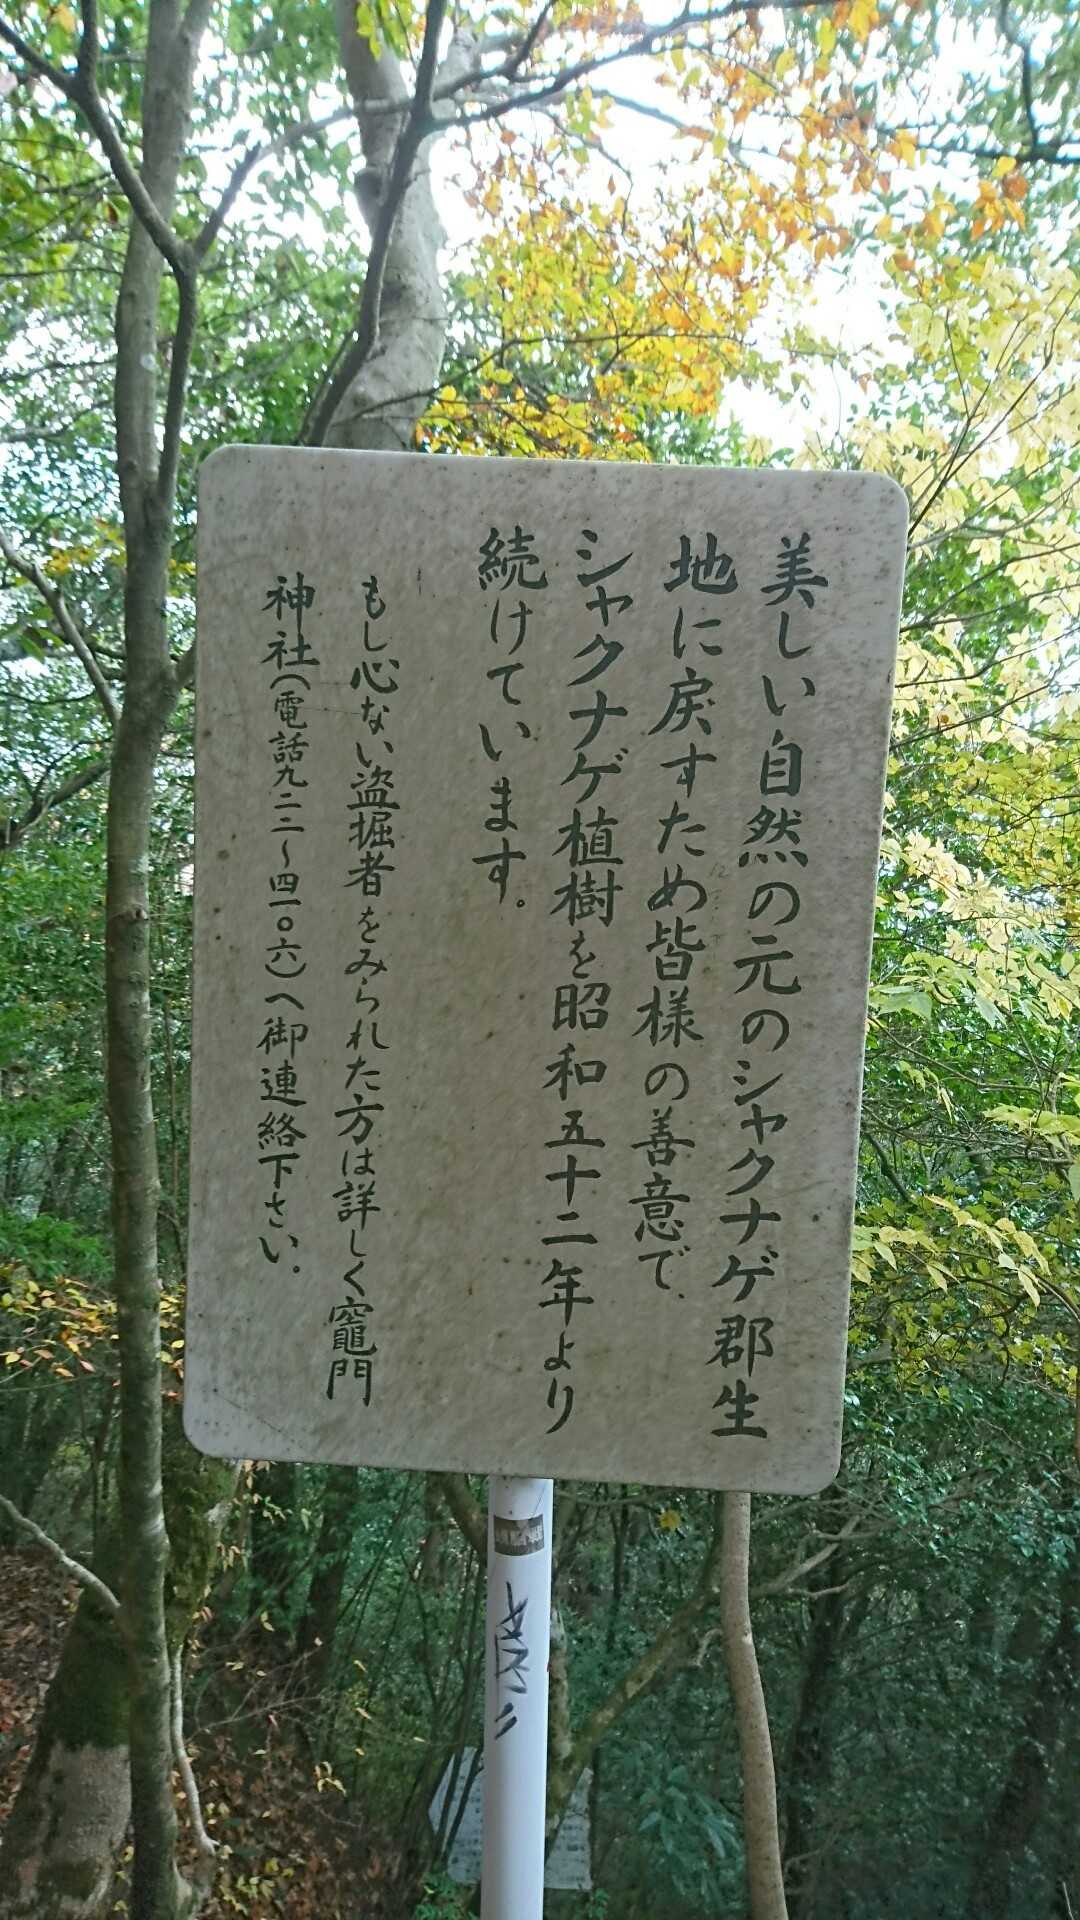 美しい自然の元のシャクナゲ郡生
地に戻すため皆様の善意で、
シャクナゲ植樹を昭和五十二年より
続けています。
もし心ない盗掘者をみられた方は詳しく竈門
神社(電話九二二〜四一〇六)へ御連絡下さい。